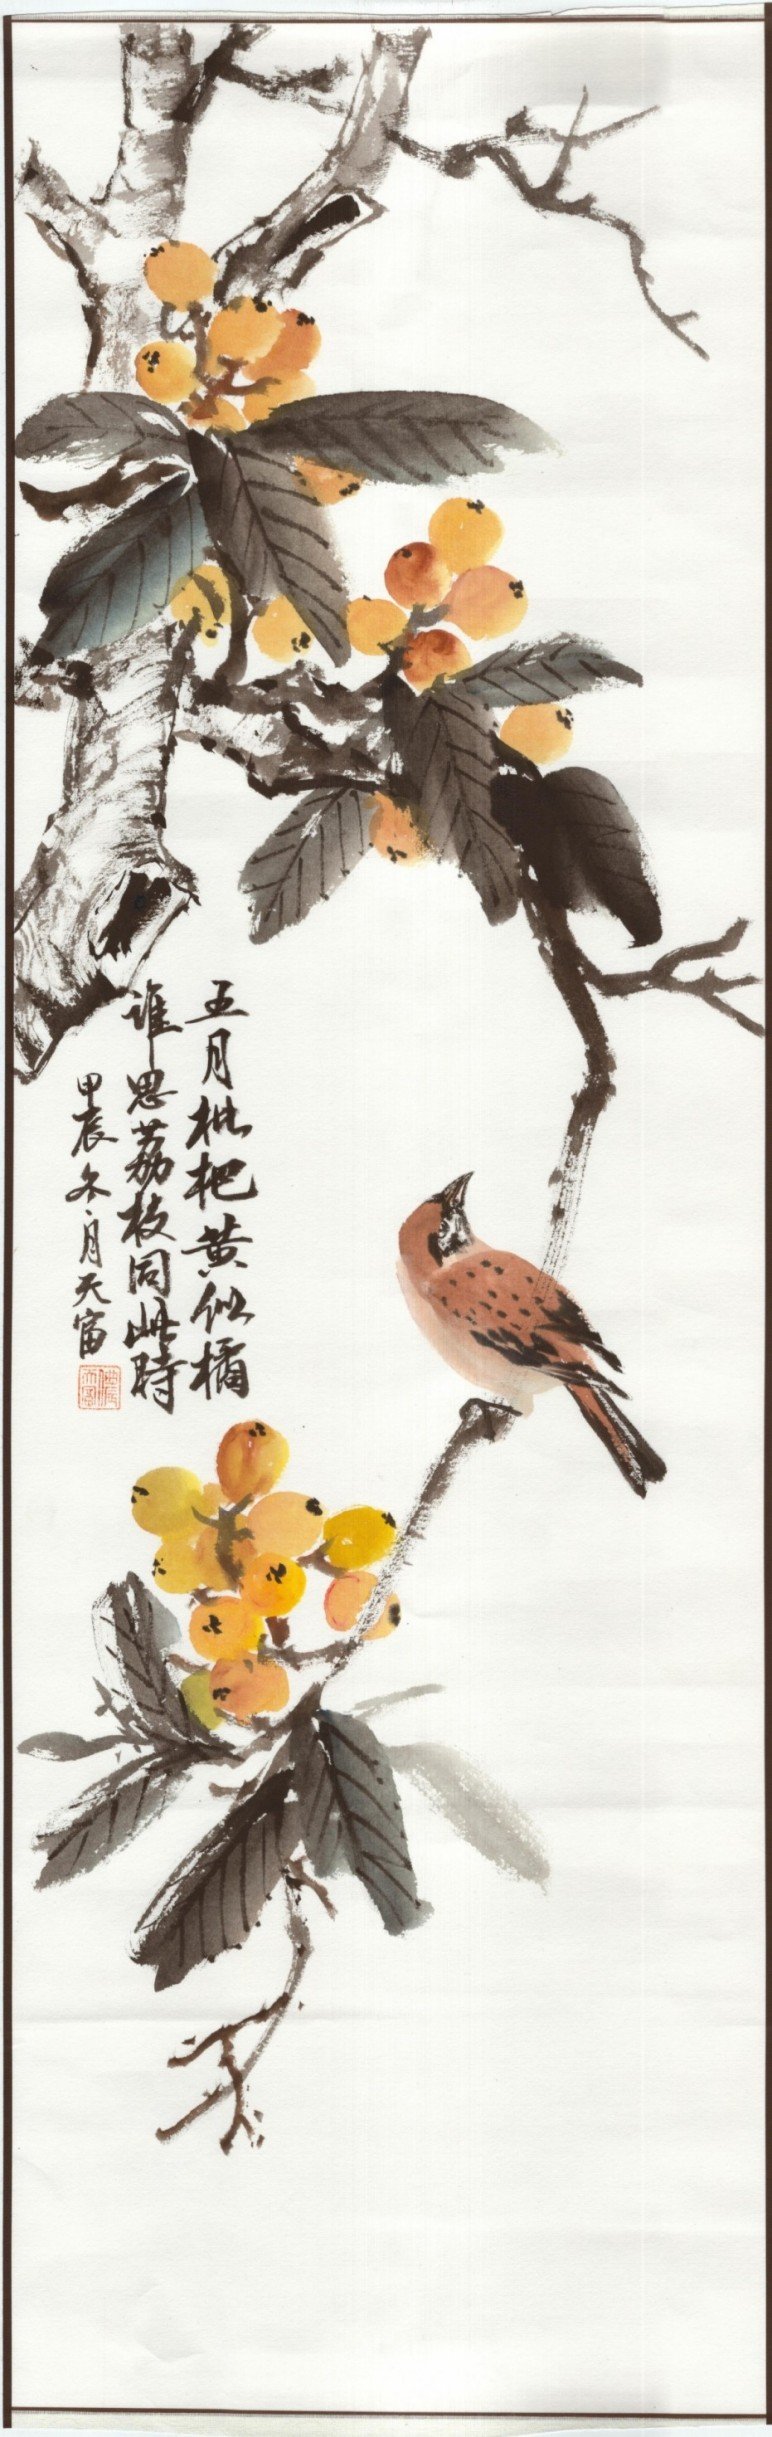 五月枇杷黄似橘
谁思荔枝同此時
甲辰冬月天富